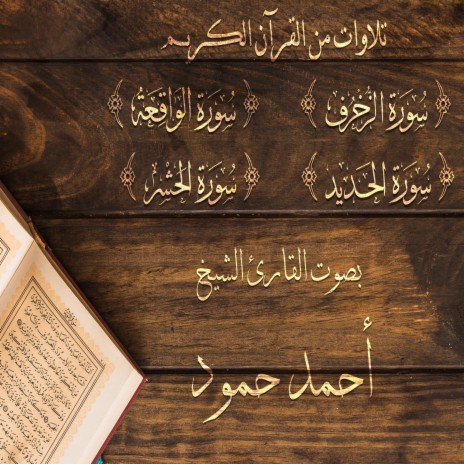 تلاوات من القرآن الكريم
﴿ سُورَةُ الزُّخْرُفِ ﴾ ﴿ سُورَةُ الوَاقِعَةِ ﴾
﴿ سُورَةُ الحَدِيدِ ﴾ ﴿ سُورَةُ الحَشْرِ ﴾
بصوت القارئ الشيخ
أحمد حمود